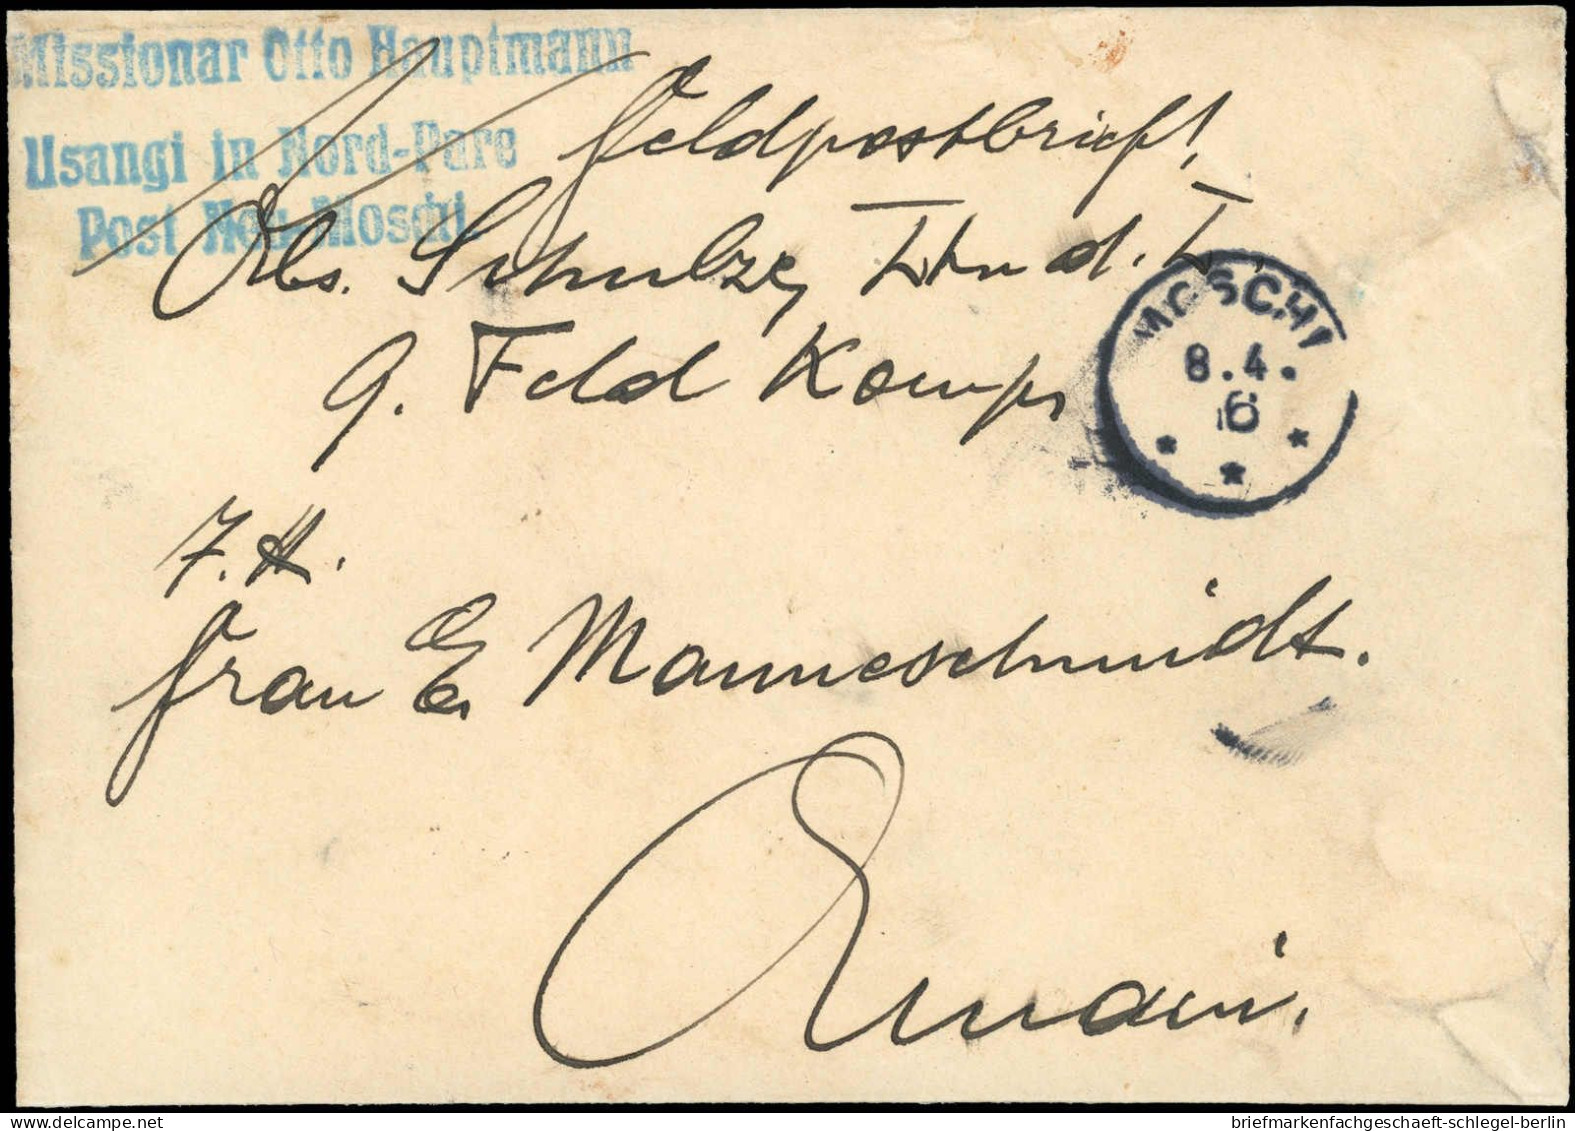 Missionar Otto Hauptmann
Usangi in Nord-Pare
Post Neu Moschi
Feldpostbrief!
Abs. Schulze, Ltn d. L.
9. Feld Komp
MOSCHI
8.4.
16
F.H.
Frau E. Manneschmidt.
Amani.
briefmarkenfachgeschaeft-schlegel-berlin